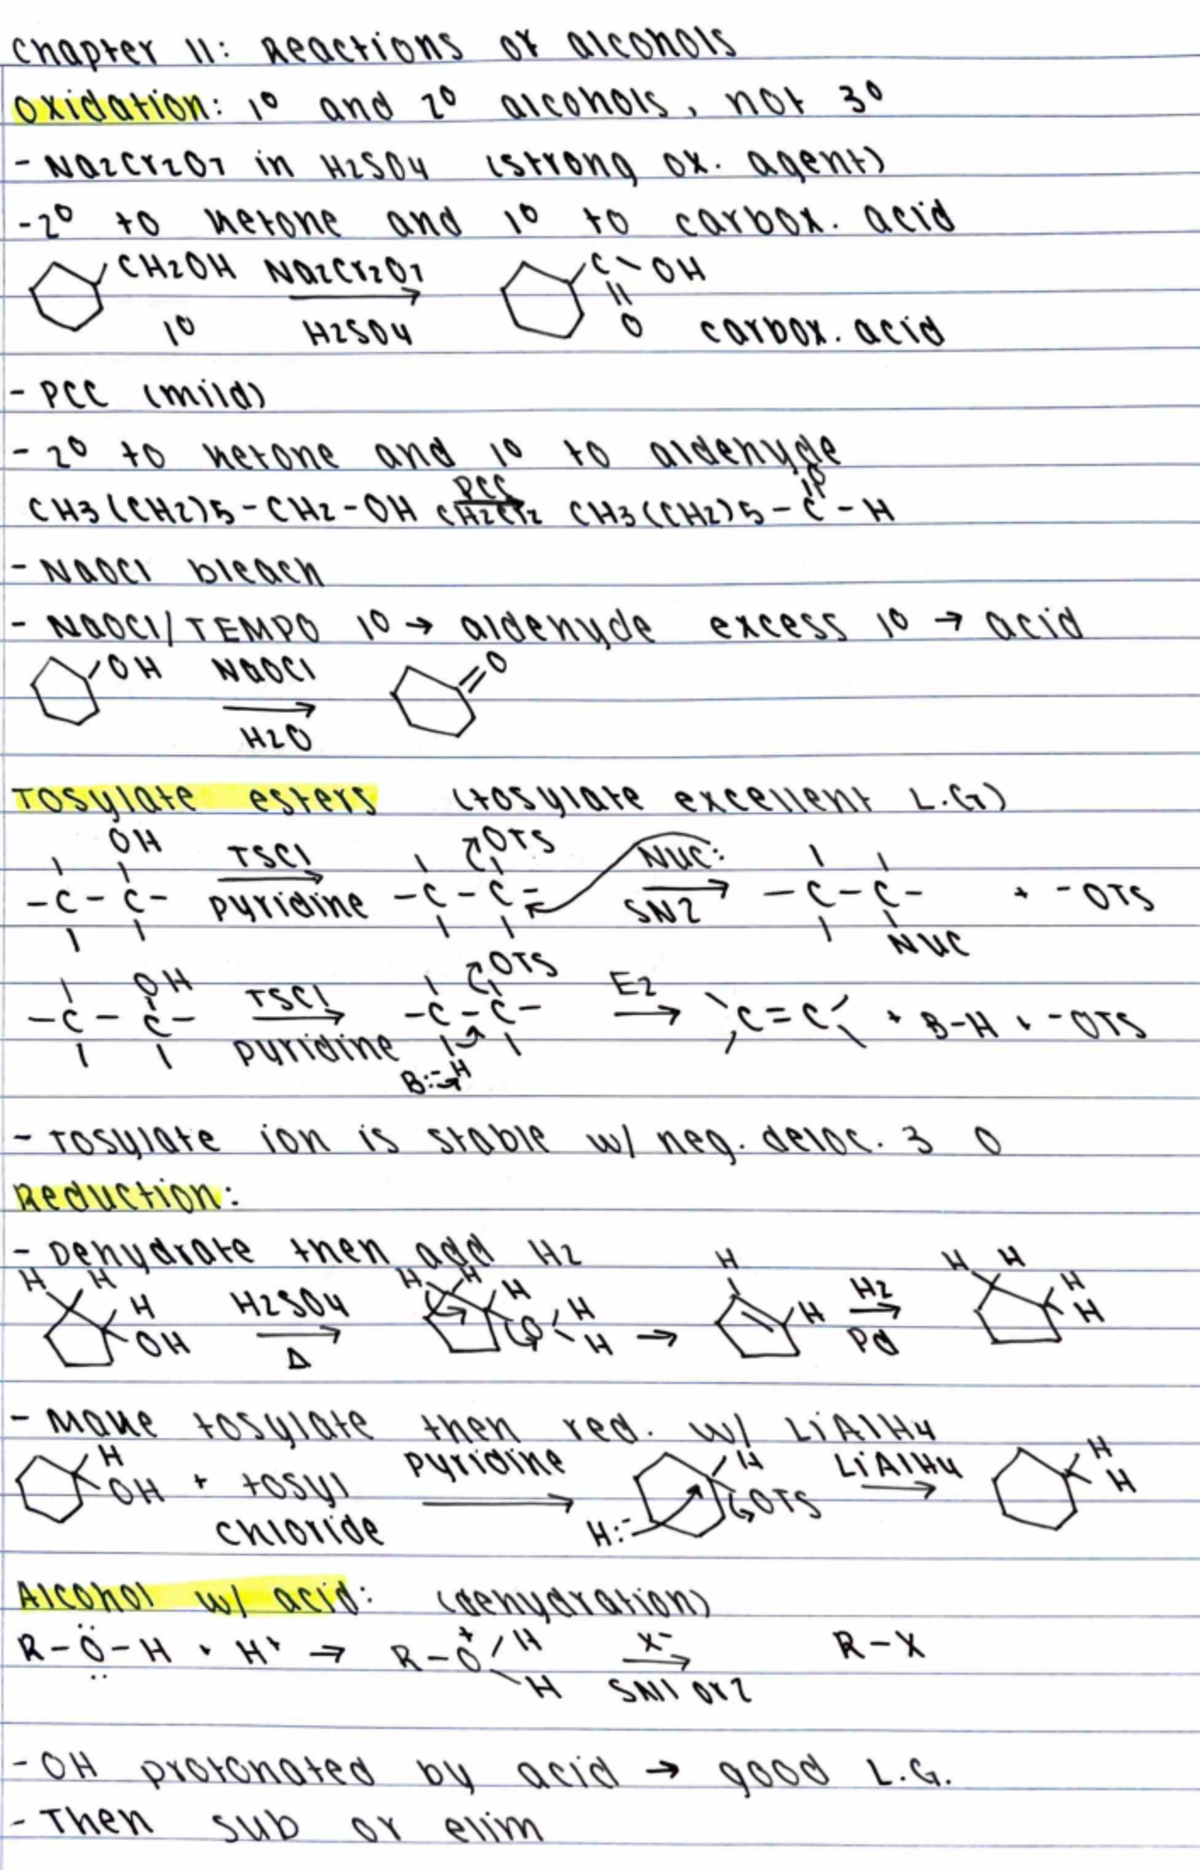 Chapter 11: Reactions of alcohols
Oxidation: 1° and 2° alcohols, not 3°
- Na2Cr2O7 in H2SO4 (strong ox. agent)
- 2° to ketone and 1° to carbox. acid
CH2OH Na2Cr2O7 C - OH
1° H2SO4 O carbox. acid
- PCC (mild)
- 2° to ketone and 1° to aldehyde
CH3(CH2)5-CH2-OH PCC CH2Cl2 CH3(CH2)5-C-H O
- NaOCl bleach
- NaOCl/TEMPO 1° → aldehyde excess 1° → acid
OH NaOCl O
H2O
Tosylate esters (tosylate excellent L.G)
OH TSCl OTS NUC:
-C-C- pyridine -C-C- SN2 -C-C- + -OTS
NUC
OH TSCl OTS E2
-C-C- pyridine -C-C- C=C + B-H + -OTS
B:- H
- Tosylate ion is stable w/ neg. deloc. 3 O
Reduction:
- Dehydrate then add H2
H H H OH H2SO4 H H H O H H → H H H2 H H H H
Δ Pd
- Make tosylate then red. w/ LiAlH4
H OH + tosyl pyridine H OTS LiAlH4 H H
chloride H:-
Alcohol w/ acid: (dehydration)
R-Ö-H + H+ → R-O+ H X- R-X
H SN1 or 2
- OH protonated by acid → good L.G.
- Then sub or elim